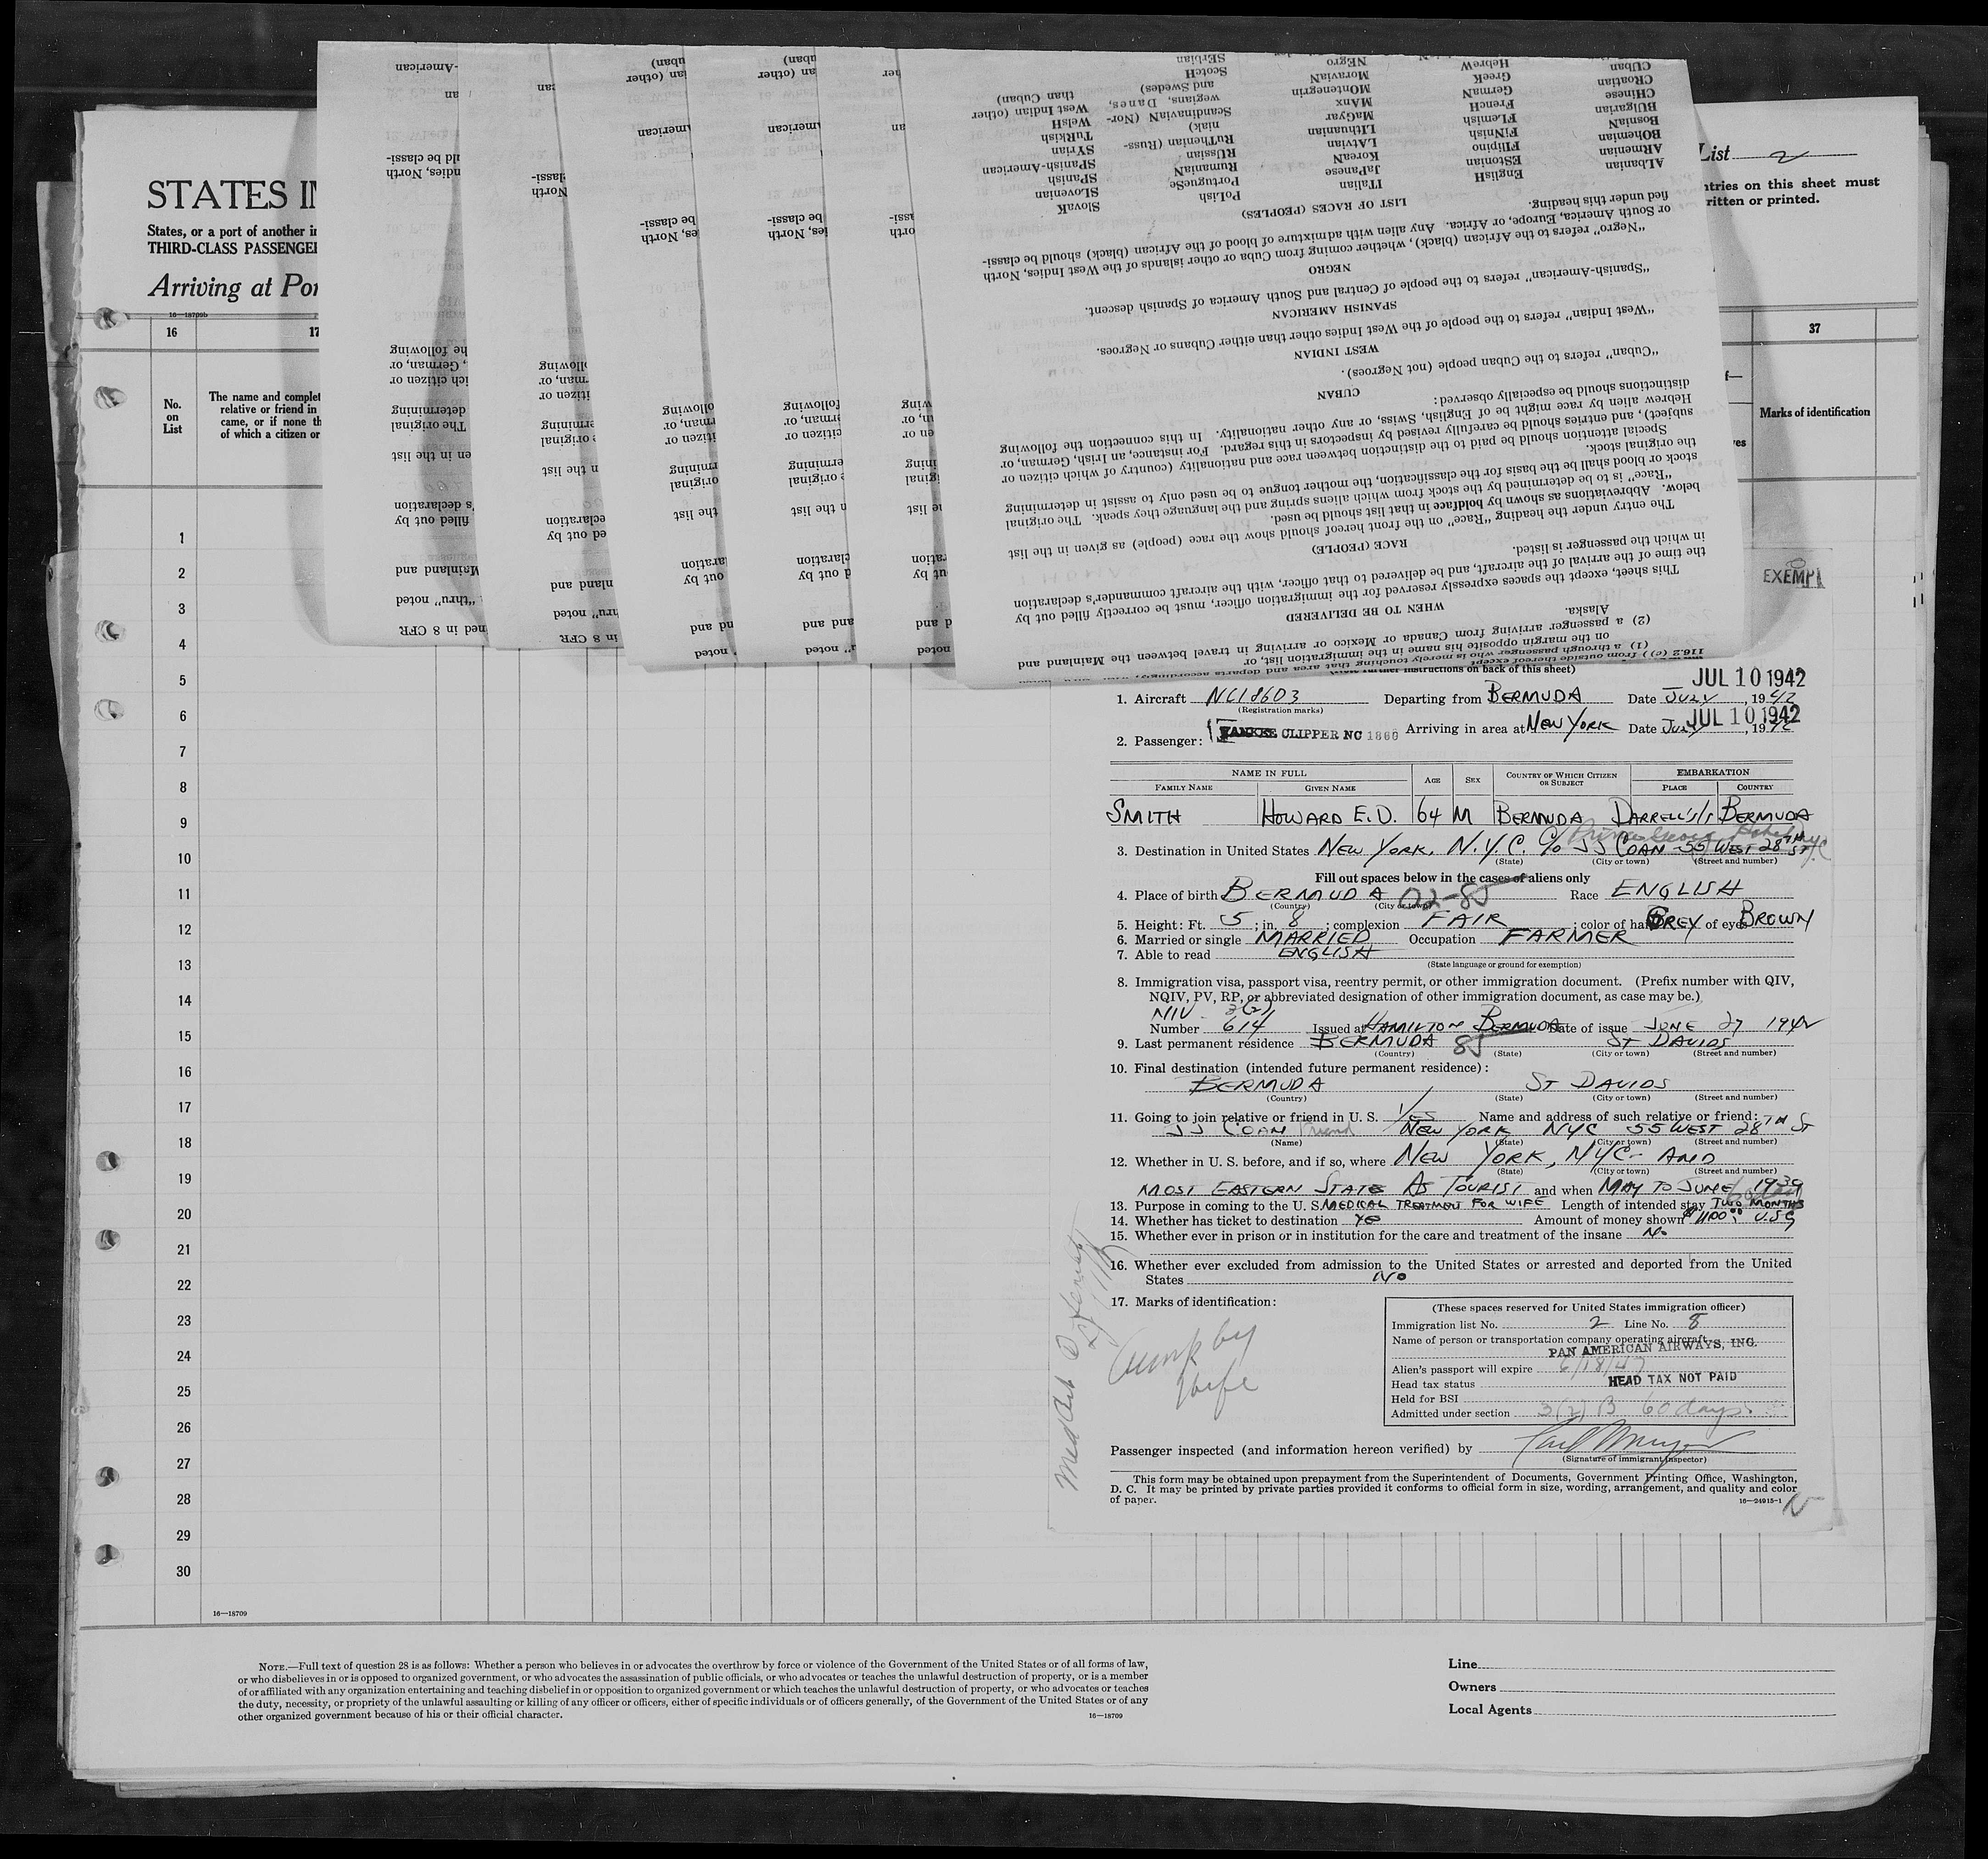 STATES I
States, or a port of another i
THIRD-CLASS PASSENGE
Arriving at Por
16—18709b
16
17
No.
on
List
The name and complet
relative or friend in
came, or if none th
of which a citizen or
1
2
3
4
5
6
7
8
9
10
11
12
13
14
15
16
17
18
19
20
21
22
23
24
25
26
27
28
29
30
16—18709
List 2
ntries on this sheet must
ritten or printed.
37
Marks of identification
EXEMPT
(1) a through passenger who is merely touching that area and departs
on the margin opposite his name in the immigration list, or
(2) a passenger arriving from Canada or Mexico or arriving in travel between the Mainland and
Alaska.
WHEN TO BE DELIVERED
This sheet, except the spaces expressly reserved for the immigration officer, must be correctly filled out by
the time of the arrival of the aircraft, and be delivered to that officer, with the aircraft commander's declaration
in which the passenger is listed.
RACE (PEOPLE)
The entry under the heading "Race" on the front hereof should show the race (people) as given in the list
below. Abbreviations as shown by boldface in that list should be used.
"Race" is to be determined by the stock from which aliens spring and the language they speak. The original
stock or blood shall be the basis for the classification, the mother tongue to be used only to assist in determining
the original stock.
Special attention should be paid to the distinction between race and nationality (country of which citizen or
subject), and entries should be carefully revised by inspectors in this regard. For instance, an Irish, German, or
Hebrew alien by race might be of English, Swiss, or any other nationality. In this connection the following
distinctions should be especially observed:
CUBAN
"Cuban" refers to the Cuban people (not Negroes).
WEST INDIAN
"West Indian" refers to the people of the West Indies other than either Cubans or Negroes.
SPANISH AMERICAN
"Spanish-American" refers to the people of Central and South America of Spanish descent.
NEGRO
"Negro" refers to the African (black), whether coming from Cuba or other islands of the West Indies, North
or South America, Europe, or Africa. Any alien with admixture of blood of the African (black) should be classi-
fied under this heading.
LIST OF RACES (PEOPLES)
AlBanian EngliSH ITalian PoLish SlovaK
ARmenian EStonian JaPanese PortuguesE SLOvenian
BOhemian FIlipino KoreaN RumaniaN SPanish
BosniaN FiNnish LAtvian RUssian SPanish-American
BUlgarian FLemish LIthuanian RuThenian (Russ- SYrian
CHinese FrencH MaGyar niak) TuRkish
CRoatian GermaN MAnx ScandinaviaN (Nor- WelsH
CUban GreeK MOntenegrin wegians, Danes, West Indian (other
HebreW MoraviaN and Swedes) than Cuban)
NEgro ScotcH
SErbian
instructions on back of this sheet)
JUL 10 1942
1. Aircraft NC18603 Departing from BERMUDA Date JULY , 1942
(Registration marks)
JUL 10 1942
YANKEE CLIPPER NC 1860 Arriving in area at NEW YORK Date JULY , 1942
2. Passenger:
NAME IN FULL AGE SEX COUNTRY OF WHICH CITIZEN OR SUBJECT EMBARKATION
FAMILY NAME GIVEN NAME PLACE COUNTRY
SMITH HOWARD E.D. 64 M BERMUDA DARRELL'S IS BERMUDA
Prince George Hotel NYC
3. Destination in United States NEW YORK, N.Y.C. C/O JJ COAN 55 WEST 28TH ST
(State) (City or town) (Street and number)
Fill out spaces below in the cases of aliens only
4. Place of birth BERMUDA 02-85 Race ENGLISH
(Country) (City or town)
5. Height: Ft. 5; in. 8; complexion FAIR; color of hair GREY of eyes BROWN
6. Married or single MARRIED Occupation FARMER
7. Able to read ENGLISH
(State language or ground for exemption)
8. Immigration visa, passport visa, reentry permit, or other immigration document. (Prefix number with QIV,
NQIV, PV, RP, or abbreviated designation of other immigration document, as case may be.)
NIV 3(2)
Number 614 Issued at HAMILTON BERMUDA Date of issue JUNE 27 1942
9. Last permanent residence BERMUDA 85 ST DAVIDS
(Country) (State) (City or town) (Street and number)
10. Final destination (intended future permanent residence):
BERMUDA ST DAVIDS
(Country) (State) (City or town) (Street and number)
11. Going to join relative or friend in U. S. YES Name and address of such relative or friend:
JJ COAN Friend NEW YORK NYC 55 WEST 28TH ST
(Name) (State) (City or town) (Street and number)
12. Whether in U. S. before, and if so, where NEW YORK, NYC - AND
(State) (City or town) (Street and number)
MOST EASTERN STATE AS TOURIST and when MAY TO JUNE 1939
60 days
13. Purpose in coming to the U. S. MEDICAL TREATMENT FOR WIFE Length of intended stay TWO MONTHS
14. Whether has ticket to destination YES Amount of money shown $1100.00 U.S.
15. Whether ever in prison or in institution for the care and treatment of the insane No
16. Whether ever excluded from admission to the United States or arrested and deported from the United
States No
17. Marks of identification:
by
wife
(These spaces reserved for United States immigration officer)
Immigration list No. 2 Line No. 8
Name of person or transportation company operating aircraft
PAN AMERICAN AIRWAYS, INC.
Alien's passport will expire 6/18/47
Head tax status HEAD TAX NOT PAID
Held for BSI
Admitted under section 3(2) B 60 days.
Passenger inspected (and information hereon verified) by
(Signature of immigrant inspector)
This form may be obtained upon prepayment from the Superintendent of Documents, Government Printing Office, Washington,
D. C. It may be printed by private parties provided it conforms to official form in size, wording, arrangement, and quality and color
of paper.
16—24915-1
NOTE.—Full text of question 28 is as follows: Whether a person who believes in or advocates the overthrow by force or violence of the Government of the United States or of all forms of law,
or who disbelieves in or is opposed to organized government, or who advocates the assassination of public officials, or who advocates or teaches the unlawful destruction of property, or is a member
of or affiliated with any organization entertaining and teaching disbelief in or opposition to organized government or which teaches the unlawful destruction of property, or who advocates or teaches
the duty, necessity, or propriety of the unlawful assaulting or killing of any officer or officers, either of specific individuals or of officers generally, of the Government of the United States or of any
other organized government because of his or their official character.
16—18709
Line
Owners
Local Agents